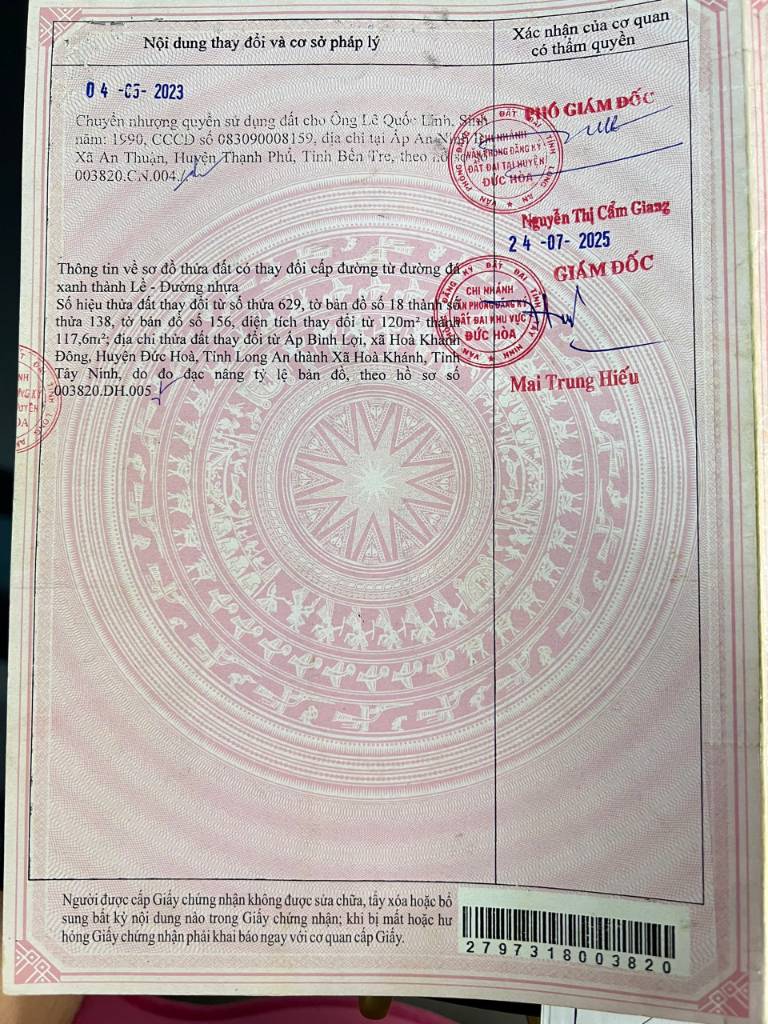 Nội dung thay đổi và cơ sở pháp lý
Xác nhận của cơ quan
có thẩm quyền
04 -05- 2023
Chuyển nhượng quyền sử dụng đất cho Ông Lê Quốc Lĩnh, Sinh
năm: 1990, CCCD số 083090008159, địa chỉ tại Ấp An Ninh
Xã An Thuận, Huyện Thạnh Phú, Tỉnh Bến Tre, theo hồ sơ số
003820.CN.004.
PHÓ GIÁM ĐỐC
VĂN PHÒNG ĐĂNG KÝ ĐẤT ĐAI TỈNH LONG AN
CHI NHÁNH
VĂN PHÒNG ĐĂNG KÝ
ĐẤT ĐAI TẠI HUYỆN
ĐỨC HÒA
Nguyễn Thị Cẩm Giang
24 -07- 2025
Thông tin về sơ đồ thửa đất có thay đổi cấp đường từ đường đá
xanh thành Lề - Đường nhựa
Số hiệu thửa đất thay đổi từ số thửa 629, tờ bản đồ số 18 thành số
thửa 138, tờ bản đồ số 156, diện tích thay đổi từ 120m² thành
117,6m²; địa chỉ thửa đất thay đổi từ Ấp Bình Lợi, xã Hoà Khánh
Đông, Huyện Đức Hoà, Tỉnh Long An thành Xã Hoà Khánh, Tỉnh
Tây Ninh, do đo đạc nâng tỷ lệ bản đồ, theo hồ sơ số
003820.DH.005
GIÁM ĐỐC
VĂN PHÒNG ĐĂNG KÝ ĐẤT ĐAI TỈNH TÂY NINH
CHI NHÁNH
VĂN PHÒNG ĐĂNG KÝ
ĐẤT ĐAI KHU VỰC
ĐỨC HÒA
Mai Trung Hiếu
Người được cấp Giấy chứng nhận không được sửa chữa, tẩy xóa hoặc bổ
sung bất kỳ nội dung nào trong Giấy chứng nhận; khi bị mất hoặc hư
hỏng Giấy chứng nhận phải khai báo ngay với cơ quan cấp Giấy.
2797318003820